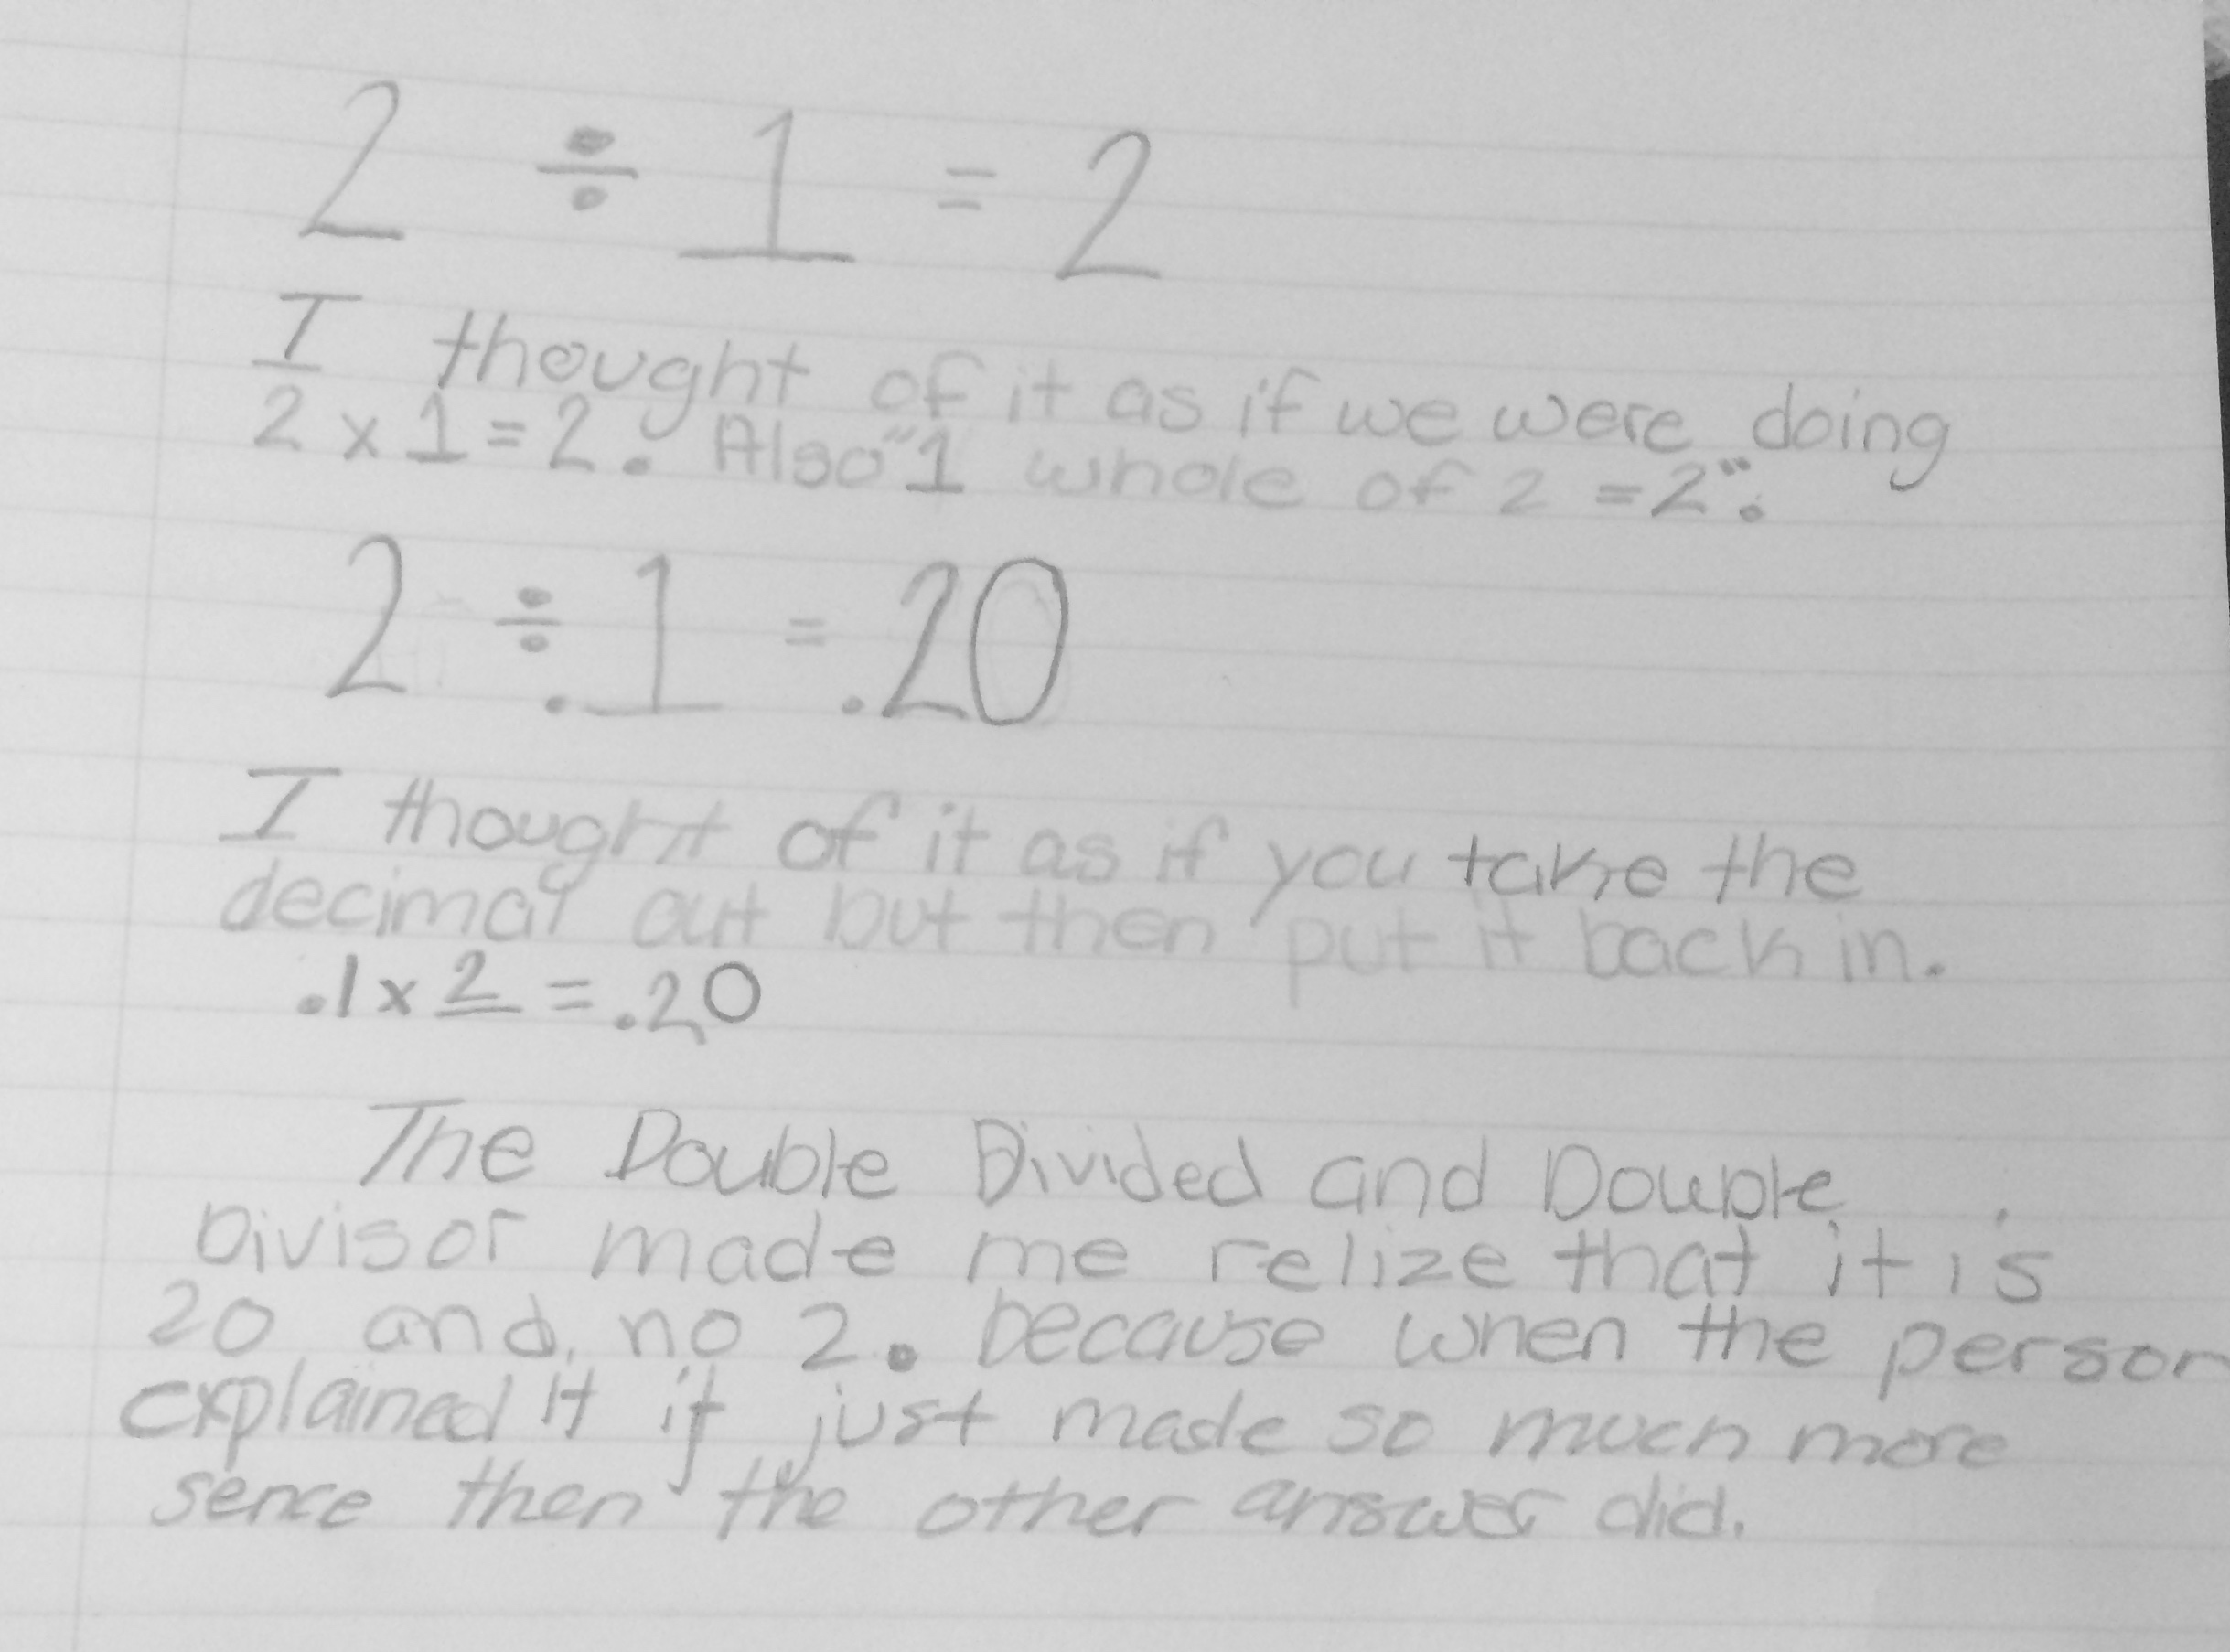 2 ÷ 1 = 2
I thought of it as if we were doing
2 x 1 = 2. Also "1 whole of 2 = 2".
2 ÷ .1 = .20
I thought of it as if you take the
decimal out but then put it back in.
.1 x 2 = .20
The Double Divided and Double
Divisor made me relize that it is
20 and no 2. because when the person
explained it it just made so much more
sence then the other answer did.